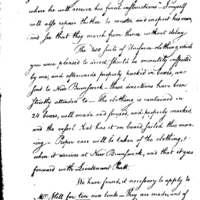 where he will receive his final instructions. I myself
will also repair thither to muster and inspect his men,
and see that they march from home without delay.
The two suits of Uniform clothing, which
you were pleased to direct, should be minutely inspected
by me; and afterwards properly packed in boxes, and
sent to New Brunswick - these directions have been
strictly attended to. The clothing is contained in
24 boxes, well made and secured, and properly marked
and the except that has it on board sailed this morn-
ing. Proper care will be taken of the clothing,
when it arrives at New Brunswick, and that it goes
forward with Lieutenant Platt.
We have found it necessary to apply to
Mr. Hall for two new tents - They are made, and of